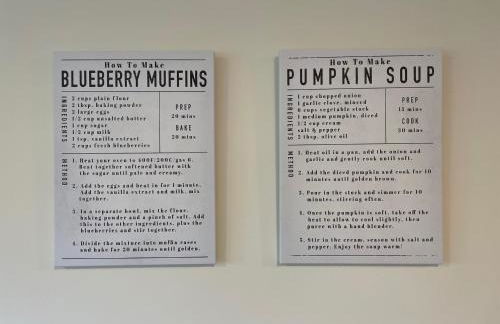 How To Make
BLUEBERRY MUFFINS
INGREDIENTS
2 cups plain flour
2 tbsp. baking powder
2 large eggs
1/2 cup unsalted butter
1 cup sugar
1/2 cup milk
1 tsp. vanilla extract
2 cups fresh blueberries
PREP
20 mins
BAKE
20 mins
METHOD
1. Heat your oven to 400F/200C/gas 6.
Beat together softened butter with
the sugar until pale and creamy.
2. Add the eggs and beat in for 1 minute.
Add the vanilla extract and milk, mix
together.
3. In a separate bowl, mix the flour,
baking powder and a pinch of salt. Add
this to the other ingredients, plus the
blueberries and stir together.
4. Divide the mixture into muffin cases
and bake for 20 minutes until golden.
How To Make
PUMPKIN SOUP
INGREDIENTS
1 cup chopped onion
1 garlic clove, minced
6 cups vegetable stock
1 medium pumpkin, diced
1/2 cup cream
salt & pepper
2 tbsp. olive oil
PREP
15 mins
COOK
30 mins
METHOD
1. Heat oil in a pan, add the onion and
garlic and gently cook until soft.
2. Add the diced pumpkin and cook for 10
minutes until golden brown.
3. Pour in the stock and simmer for 10
minutes, stirring often.
4. Once the pumpkin is soft, take off the
heat to allow to cool slightly, then
puree with a hand blender.
5. Stir in the cream, season with salt and
pepper. Enjoy the soup warm!